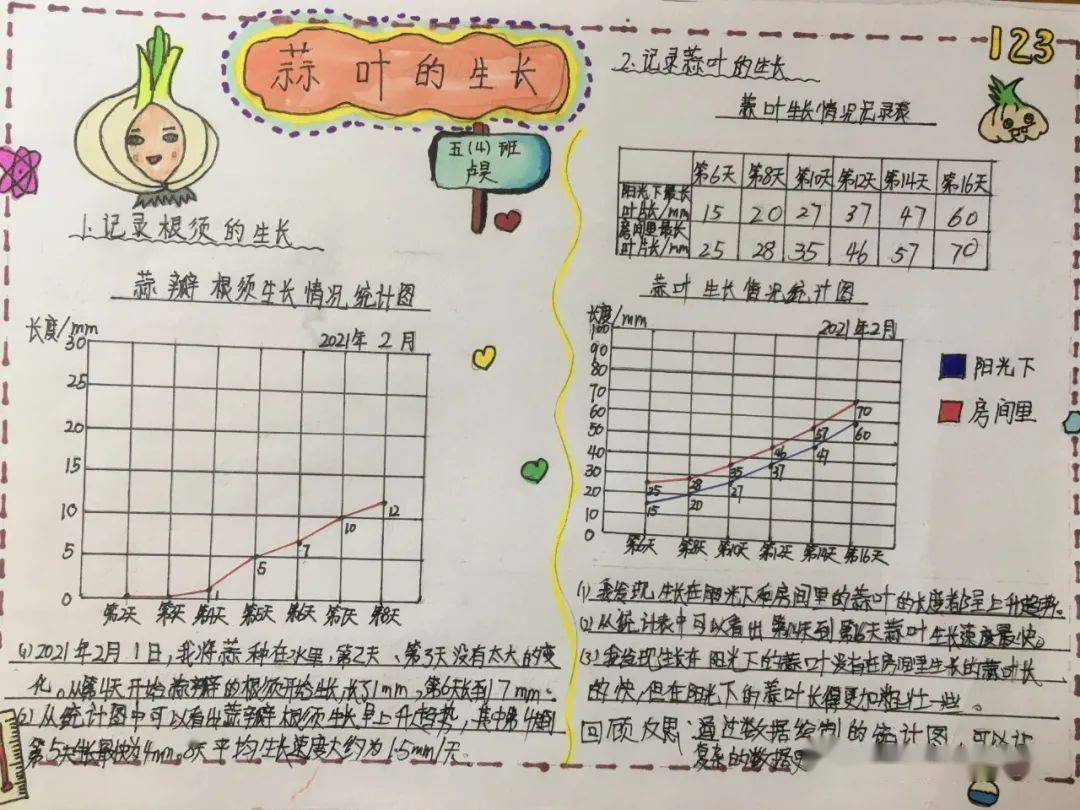 蒜叶的生长
五(4)班
卢昊
1.记录根须的生长
蒜瓣根须生长情况统计图
长度/mm
2021年2月
30
25
20
15
10
5
0
5
7
10
12
第2天 第3天 第4天 第5天 第6天 第7天 第8天
(1)2021年2月1日,我将蒜种在水里,第2天、第3天没有太大的变
化。从第4天开始蒜瓣的根须开始生长了1mm,第6天长到17mm。
(2)从统计图中可以看出蒜瓣根须生长呈上升趋势,其中第4天到
第5天生长最快为4mm。8天平均生长速度大约为1.5mm/天。
123
2.记录蒜叶的生长
蒜叶生长情况记录表
第6天 第8天 第10天 第12天 第14天 第16天
阳光下最长
叶片长/mm 15 20 27 37 47 60
房间里最长
叶片长/mm 25 28 35 46 57 70
蒜叶生长情况统计图
长度/mm
2021年2月
100
90
80
70
60
50
40
30
20
10
0
25 28 35 46 57 70
15 20 27 37 47 60
第6天 第8天 第10天 第12天 第14天 第16天
阳光下
房间里
(1)我发现生长在阳光下和房间里的蒜叶的长度都呈上升趋势。
(2)从统计表中可以看出第14天到第16天蒜叶生长速度最快。
(3)我发现生长在阳光下的蒜叶没有在房间里生长的蒜叶长
的快,但在阳光下的蒜叶长得更加粗壮一些。
回顾反思:通过数据绘制的统计图,可以让
复杂的数据更